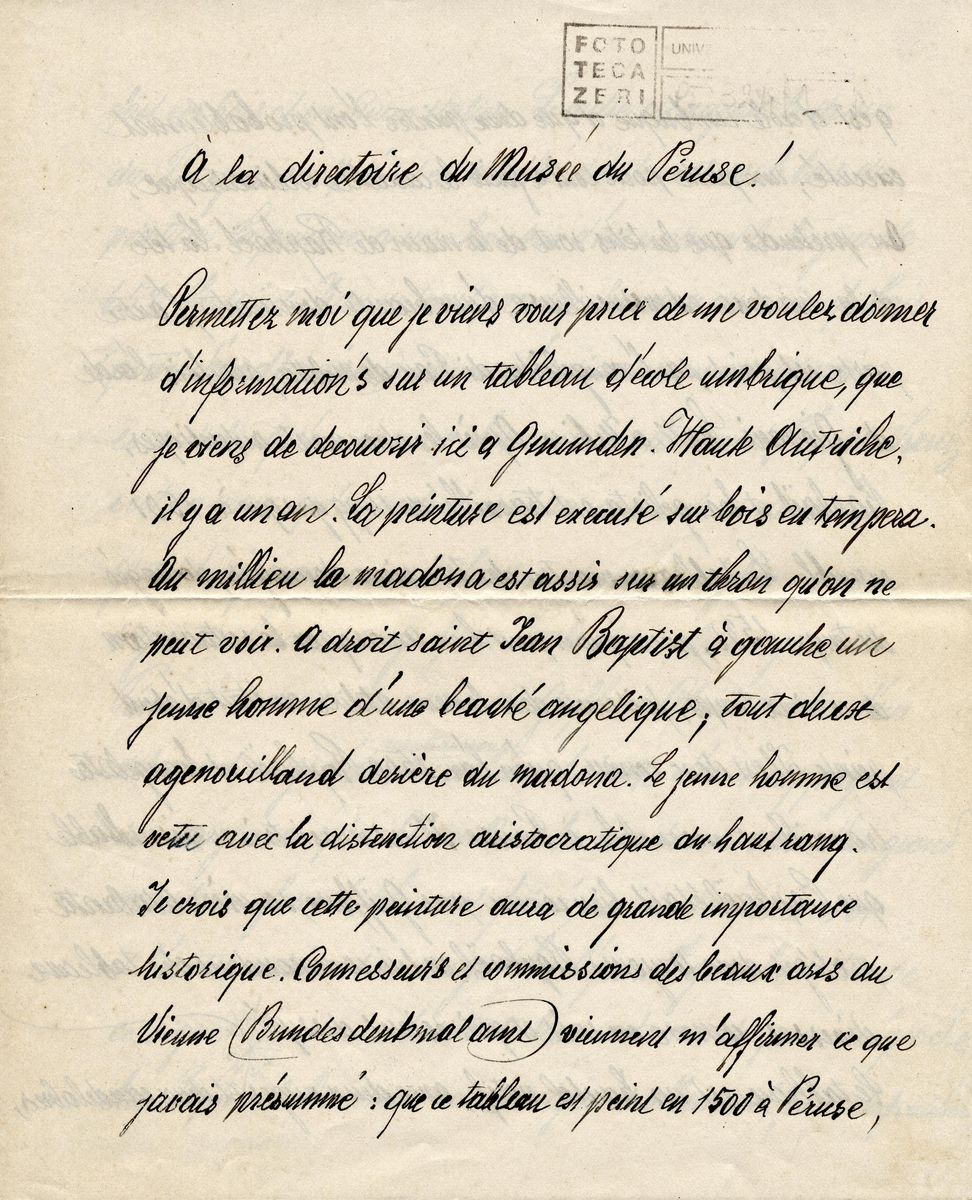 FOTO
TECA
ZERI
UNIV
À la directoire du Musée du Péruse!
Permettez moi que je viens vous prier de me voulez donner
d'information's sur un tableau d'école umbrique, que
je viens de decouvrir ici a Gmunden. Haute Autriche,
il y a un an. La peinture est executé sur bois en tampera.
Au millieu la madona est assis sur un thron qu'on ne
peut voir. A droit saint Jean Baptist à gauche un
jeune homme d'une beauté angelique; tout deux
agenouilland derière du madona. Le jeune homme est
vetu avec la distinction aristocratique du haut rang.
Je crois que cette peinture aura de grande importance
historique. Connesseur's et commissions des beaux arts du
Vienne (Bundesdenkmalamt) viennent m'affirmer ce que
javais présummé: que ce tableau est peint en 1500 à Péruse,